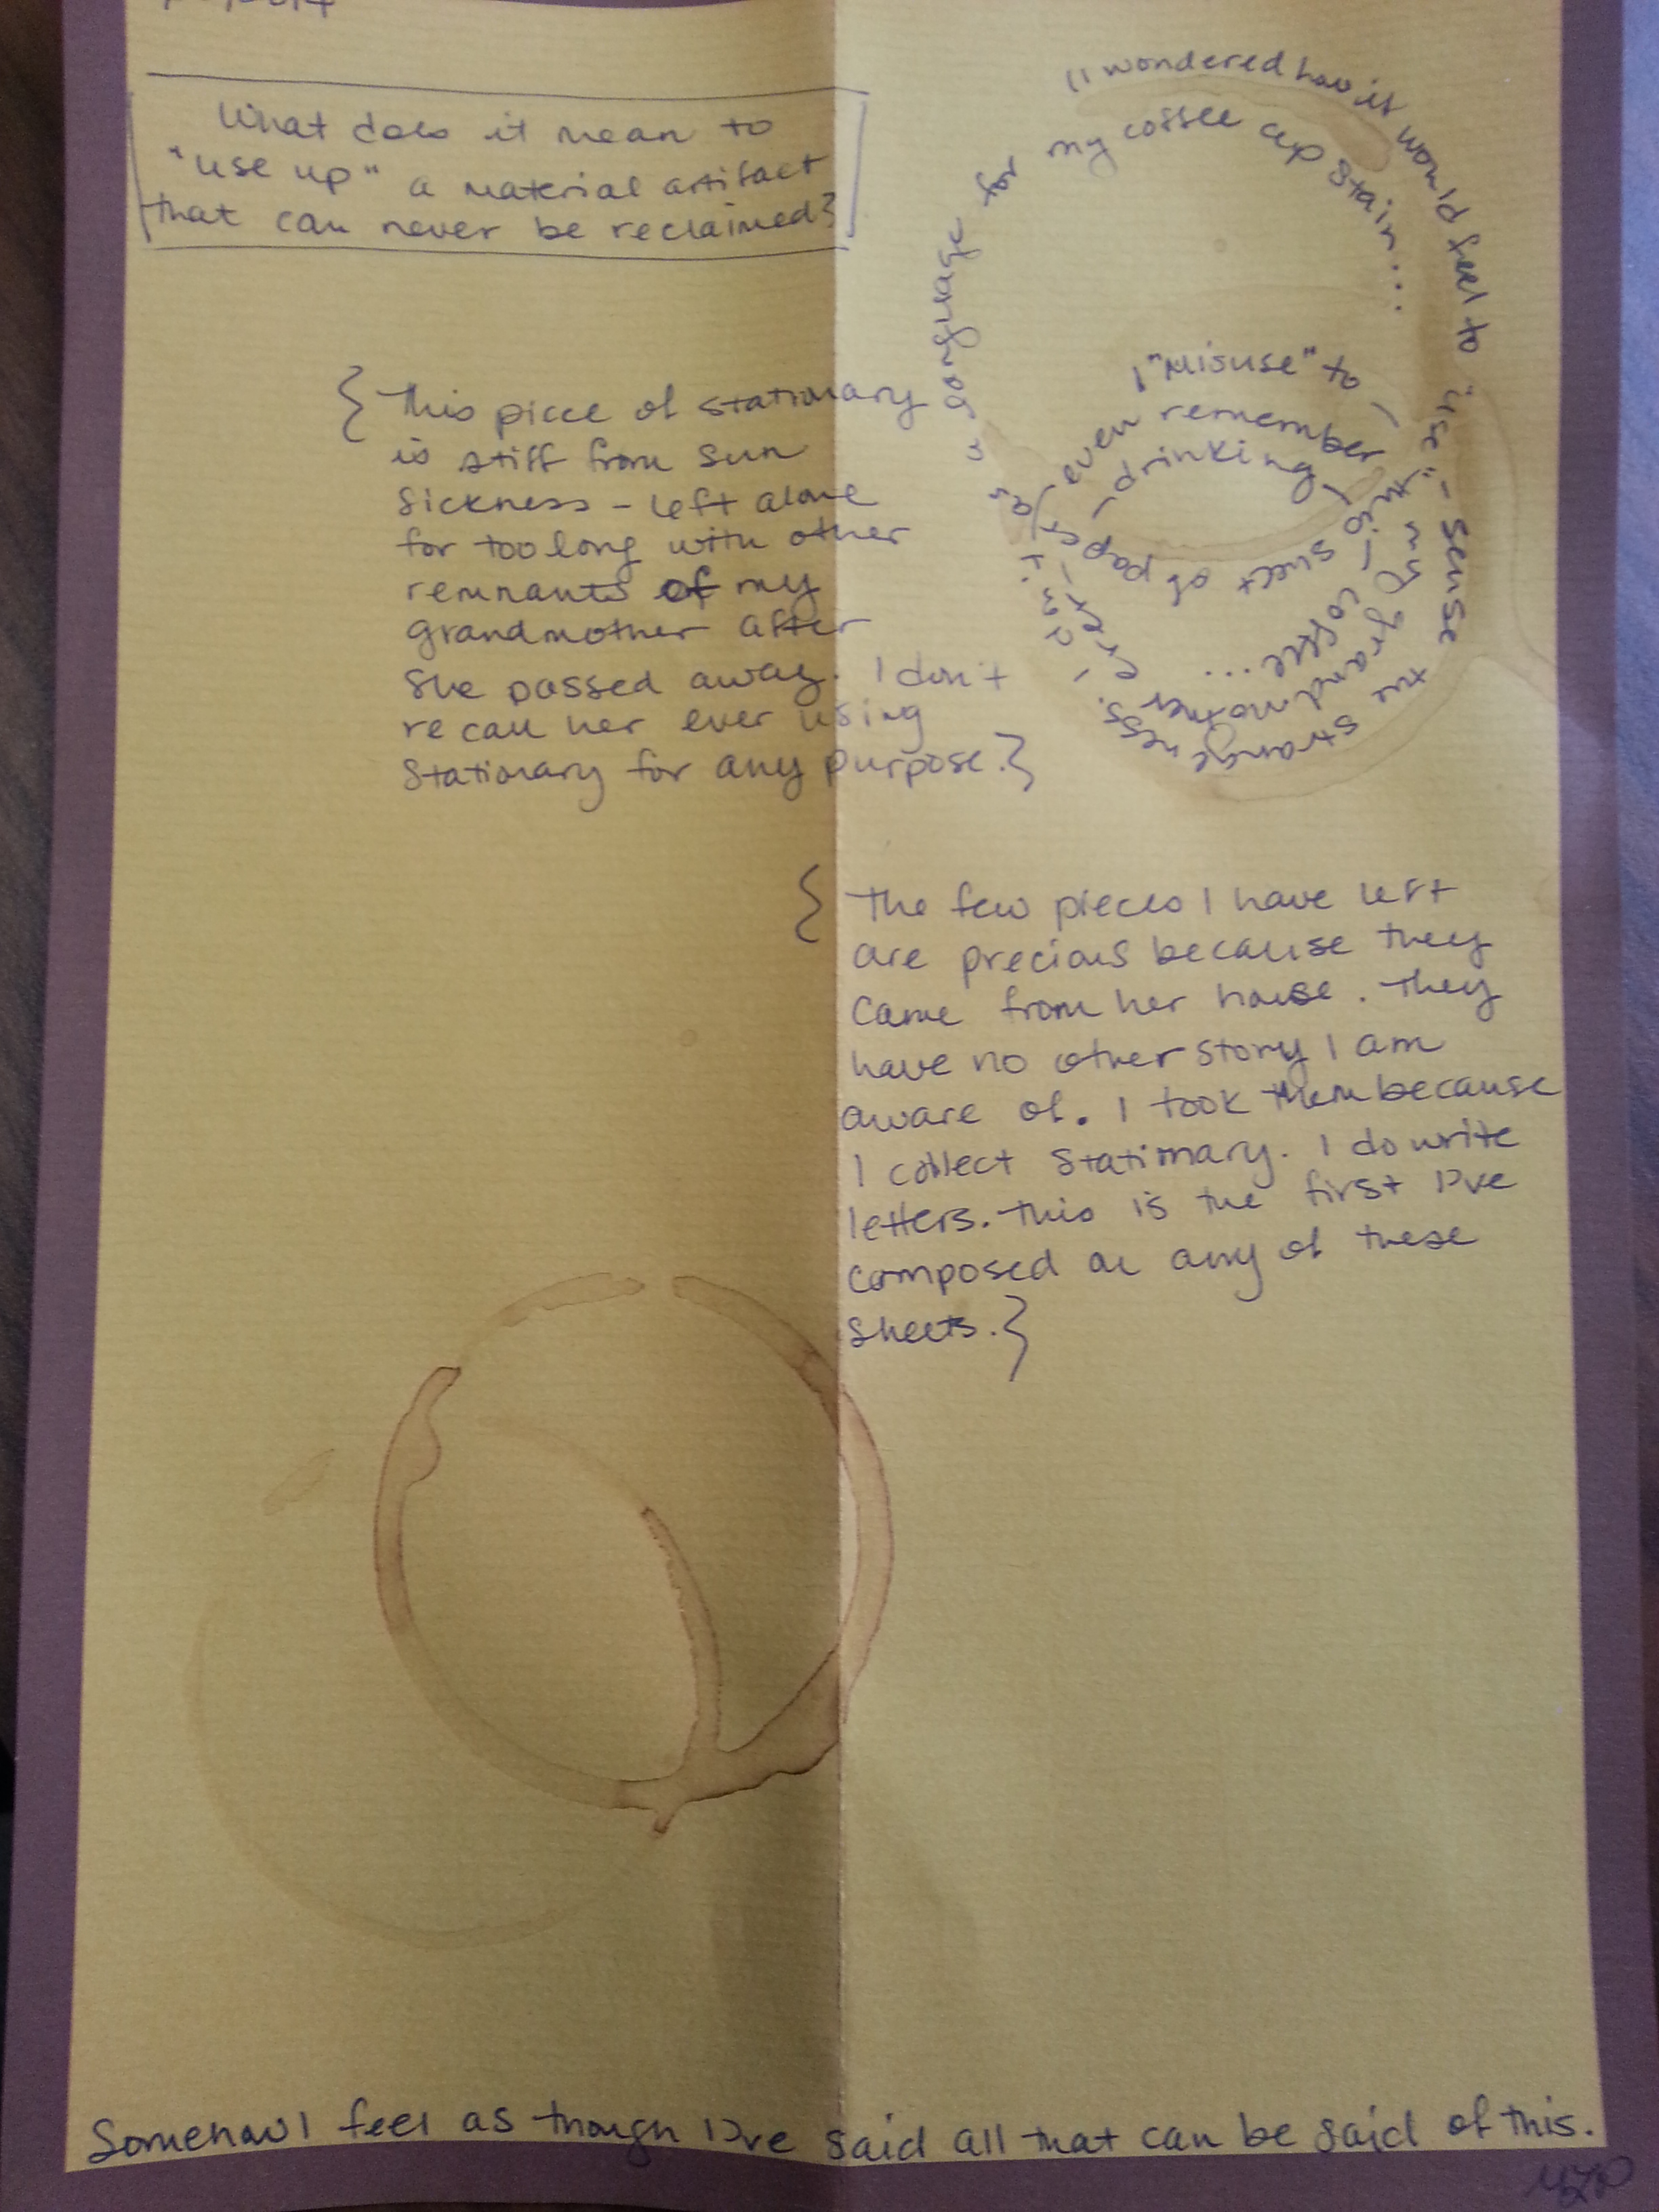 What does it mean to
"use up" a material artifact
that can never be reclaimed?
I wondered how it would feel to "use" - sense the strangeness.
a language for my coffee cup stain...
I "misuse" to
this sheet of paper
even remember my grandmother
drinking coffee...
{ This piece of stationary
is stiff from sun
sickness - left alone
for too long with other
remnants of my
grandmother after
she passed away. I don't
recall her ever using
stationary for any purpose. }
{ The few pieces I have left
are precious because they
came from her house. They
have no other story I am
aware of. I took them because
I collect stationary. I do write
letters. This is the first I've
composed on any of these
sheets. }
Somehow I feel as though I've said all that can be said of this.